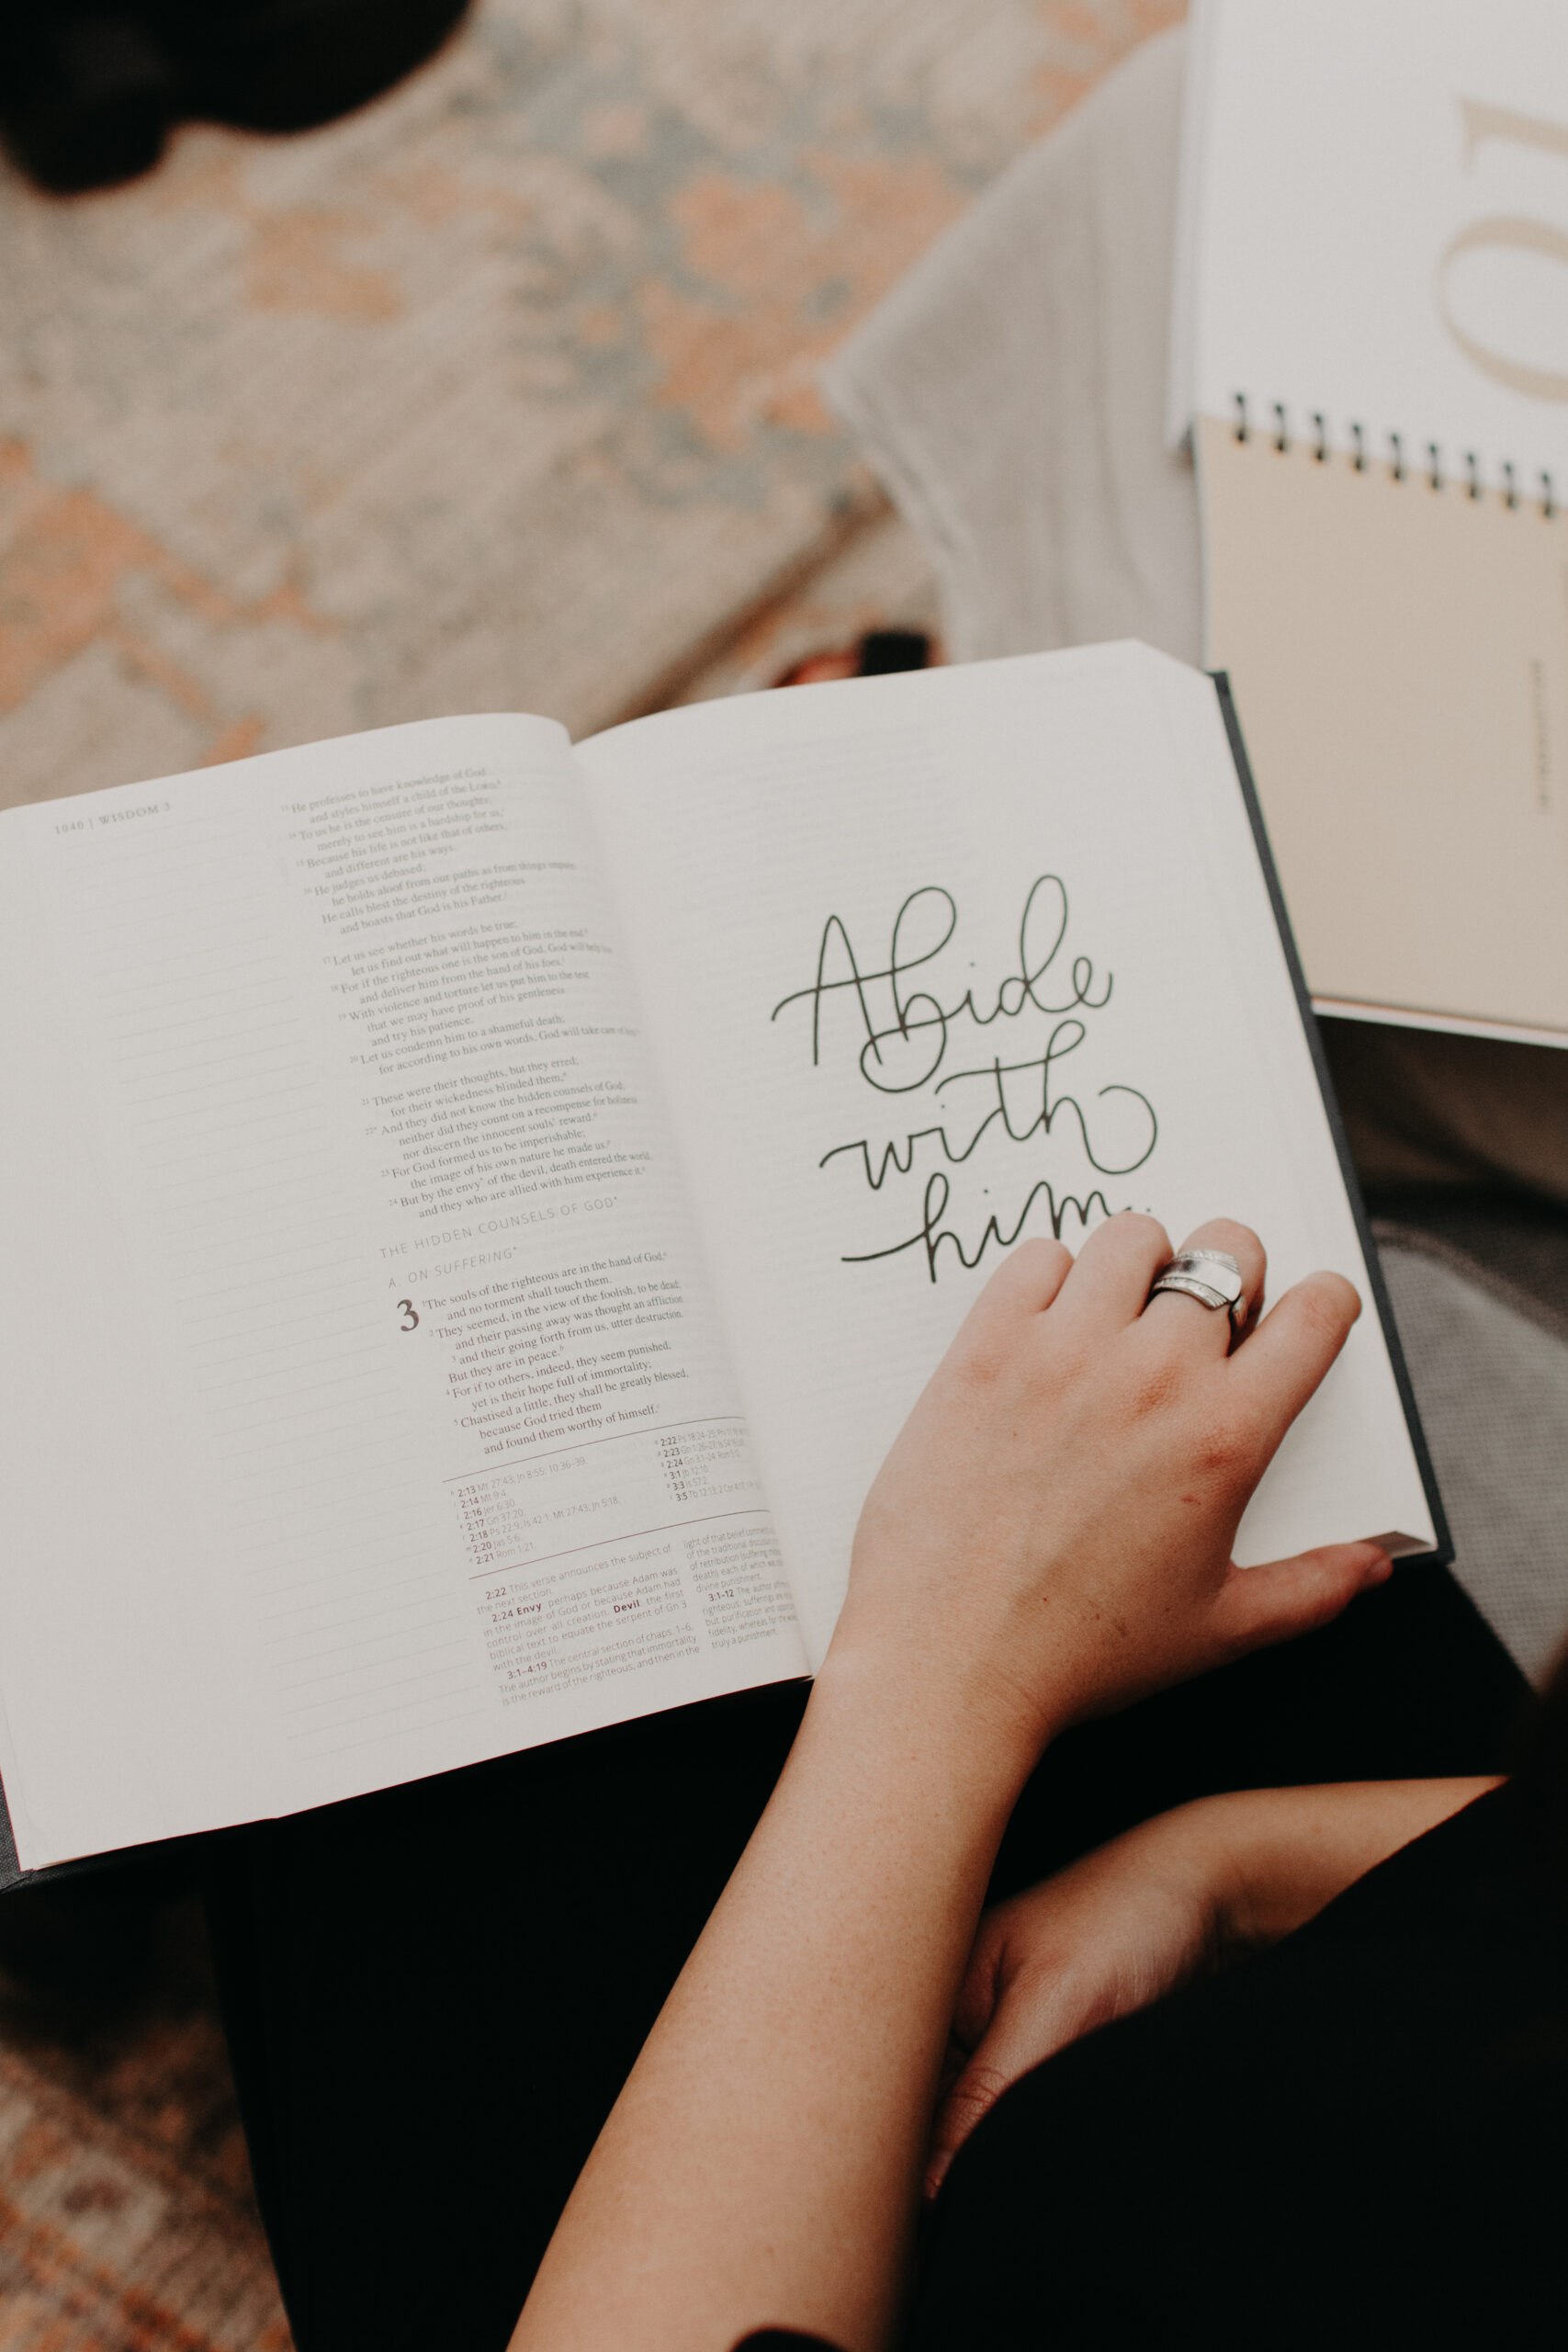 1040 | WISDOM 3
13 He professes to have knowledge of God
and styles himself a child of the LORD.
14 To us he is the censure of our thoughts;
merely to see him is a hardship for us,
15 Because his life is not like that of others,
and different are his ways.
16 He judges us debased;
he holds aloof from our paths as from things impure.
He calls blest the destiny of the righteous
and boasts that God is his Father.
17 Let us see whether his words be true;
let us find out what will happen to him in the end.
18 For if the righteous one is the son of God, God will help him
and deliver him from the hand of his foes.
19 With violence and torture let us put him to the test
that we may have proof of his gentleness
and try his patience.
20 Let us condemn him to a shameful death;
for according to his own words, God will take care of him."
21 These were their thoughts, but they erred;
for their wickedness blinded them,
22* And they did not know the hidden counsels of God;
neither did they count on a recompense for holiness
nor discern the innocent souls' reward.
23 For God formed us to be imperishable;
the image of his own nature he made us.
24 But by the envy* of the devil, death entered the world,
and they who are allied with him experience it.
THE HIDDEN COUNSELS OF GOD*
A. ON SUFFERING*
3 1 The souls of the righteous are in the hand of God,
and no torment shall touch them.
2 They seemed, in the view of the foolish, to be dead;
and their passing away was thought an affliction
3 and their going forth from us, utter destruction.
But they are in peace.
4 For if to others, indeed, they seem punished,
yet is their hope full of immortality;
5 Chastised a little, they shall be greatly blessed,
because God tried them
and found them worthy of himself.
2:13 Mt 27:43; Jn 8:55; 10:36–39.
2:14 Mt 9:4.
2:16 Jer 6:30.
2:17 Gn 37:20.
2:18 Ps 22:9; Is 42:1; Mt 27:43; Jn 5:18.
2:20 Jas 5:6.
2:21 Rom 1:21.
2:22
2:23
2:24
3:1
3:3
3:5
2:22 This verse announces the subject of
the next section.
2:24 Envy perhaps because Adam was
in the image of God or because Adam had
control over all creation. Devil the first
biblical text to equate the serpent of Gn 3
with the devil.
3:1–4:19 The central section of chaps. 1–6.
The author begins by stating that immortality
is the reward of the righteous, and then in the
light of that belief
of the traditional
of retribution (suffering,
death) each of which was
divine punishment.
3:1–12 The author
righteous: sufferings are
but purification and
fidelity, whereas for the
truly a punishment.
Abide
with
him
01